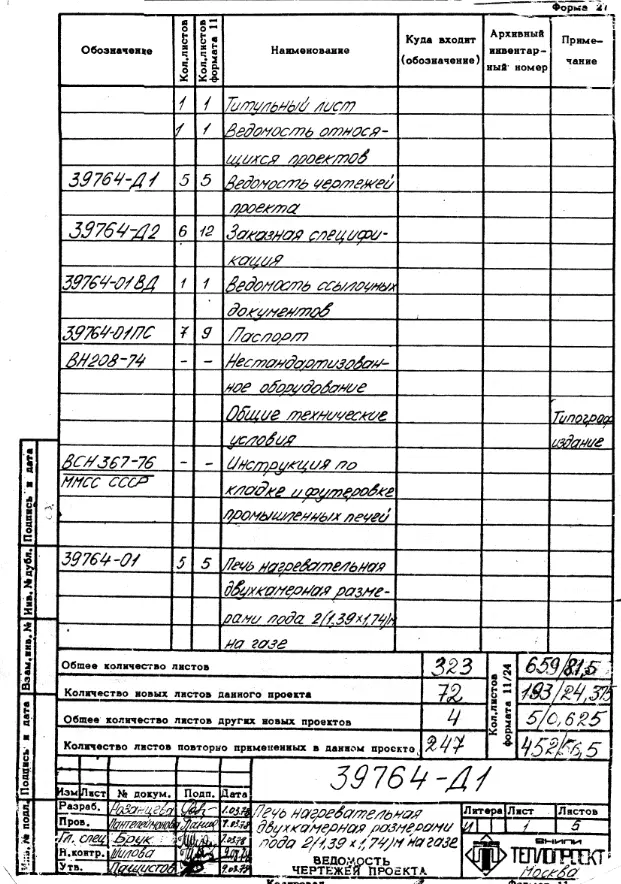 Форма 21
Обозначение Кол.листов Кол.листов формата 11 Наименование Куда входит (обозначение) Архивный инвентарный номер Примечание
1 1 Титульный лист
1 1 Ведомость относя-
щихся проектов
39764-Д1 5 5 Ведомость чертежей
проекта
39764-Д2 6 12 Заказная специфи-
кация
39764-01ВД 1 1 Ведомость ссылочных
документов
39764-01ПС 7 9 Паспорт
ВН208-74 - - Нестандартизован-
ное оборудование
Общие технические Типограф
условия издание
ВСН367-76 - - Инструкция по
ММСС СССР кладке и футеровке
промышленных печей
39764-01 5 5 Печь нагревательная
двухкамерная разме-
рами пода 2(1,39×1,74)м
на газе
Общее количество листов 323 659/81,5
Количество новых листов данного проекта 72 193/24,375
Общее количество листов других новых проектов 4 5/0,625
Количество листов повторно примененных в данном проекте 247 452/56,5
Кол.листов формата 11/24
Подпись и дата
Инв. № дубл.
Взам. инв. №
Подпись и дата
Инв. № подл.
39764-Д1
Изм Лист № докум. Подп. Дата
Разраб. Казанцева 1.03.78
Пров. Пантелеймонова
Гл. спец Брук
Н.контр. Шилова
Утв.
Печь нагревательная
двухкамерная размерами
пода 2(1,39×1,74)м на газе
ВЕДОМОСТЬ
ЧЕРТЕЖЕЙ ПРОЕКТА
Литера Лист Листов
И 1 5
ВНИПИ
ТЕПЛОПРОЕКТ
Москва
Копировал